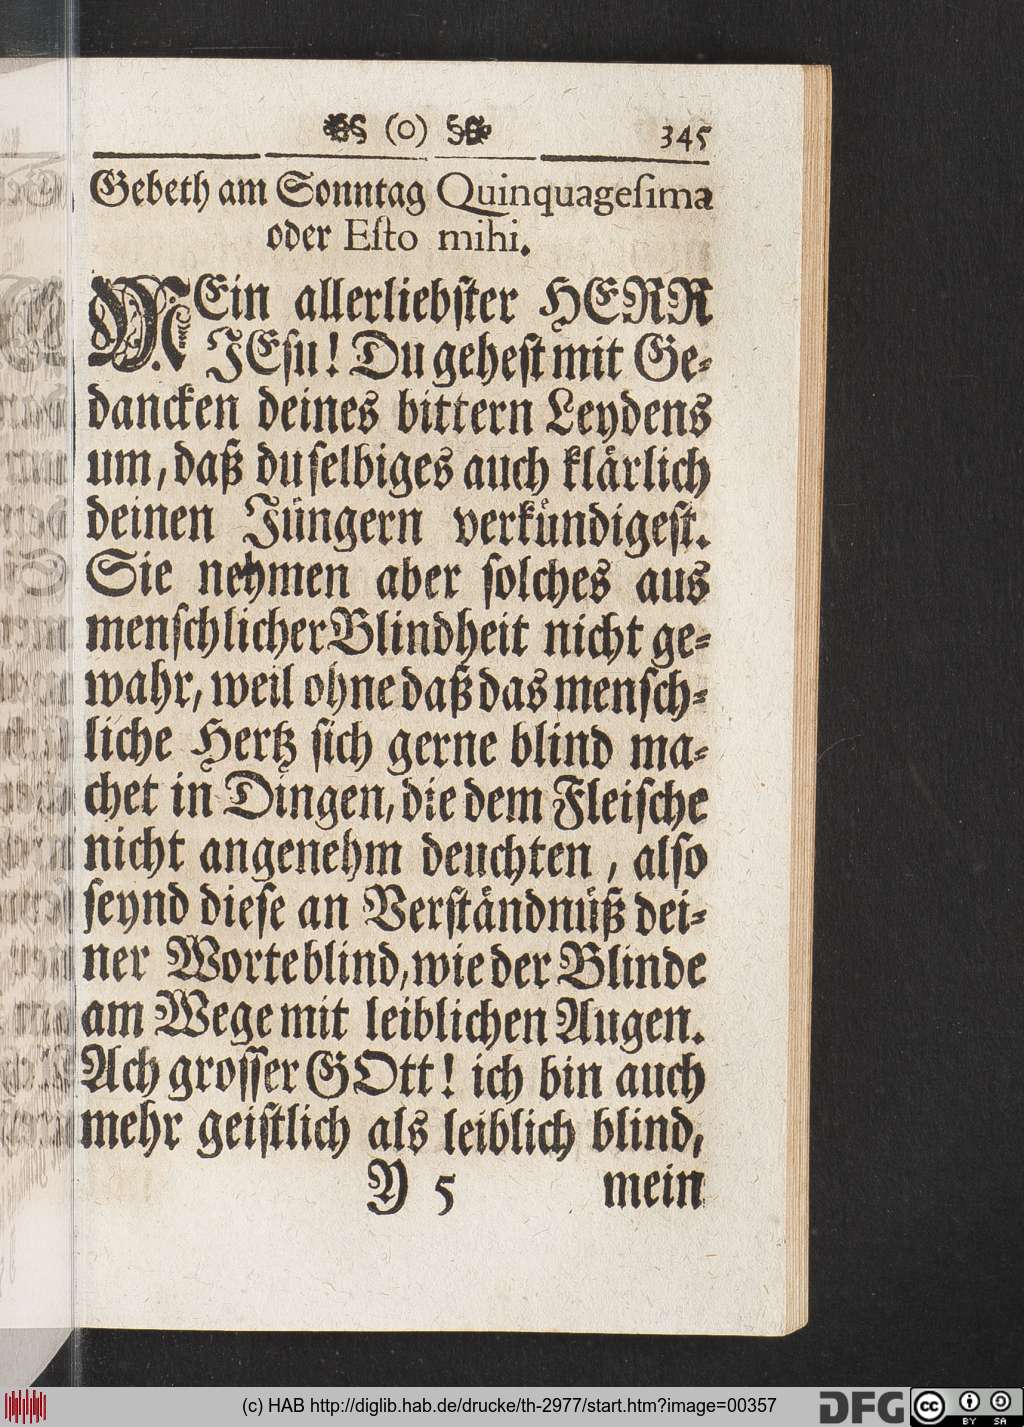 (o) 345
Gebeth am Sonntag Quinquageſima
oder Eſto mihi.
MEin allerliebſter HERR
JEſu! Du geheſt mit Ge⸗
dancken deines bittern Leydens
um, daß du ſelbiges auch klaͤrlich
deinen Juͤngern verkuͤndigeſt.
Sie nehmen aber ſolches aus
menſchlicher Blindheit nicht ge⸗
wahr, weil ohne daß das menſch⸗
liche Hertz ſich gerne blind ma⸗
chet in Dingen, die dem Fleiſche
nicht angenehm deuchten, alſo
ſeynd dieſe an Verſtaͤndnuͤß dei⸗
ner Worte blind, wie der Blinde
am Wege mit leiblichen Augen.
Ach groſſer GOtt! ich bin auch
mehr geiſtlich als leiblich blind,
Y 5 mein
(c) HAB http://diglib.hab.de/drucke/th-2977/start.htm?image=00357
DFG
cc BY SA